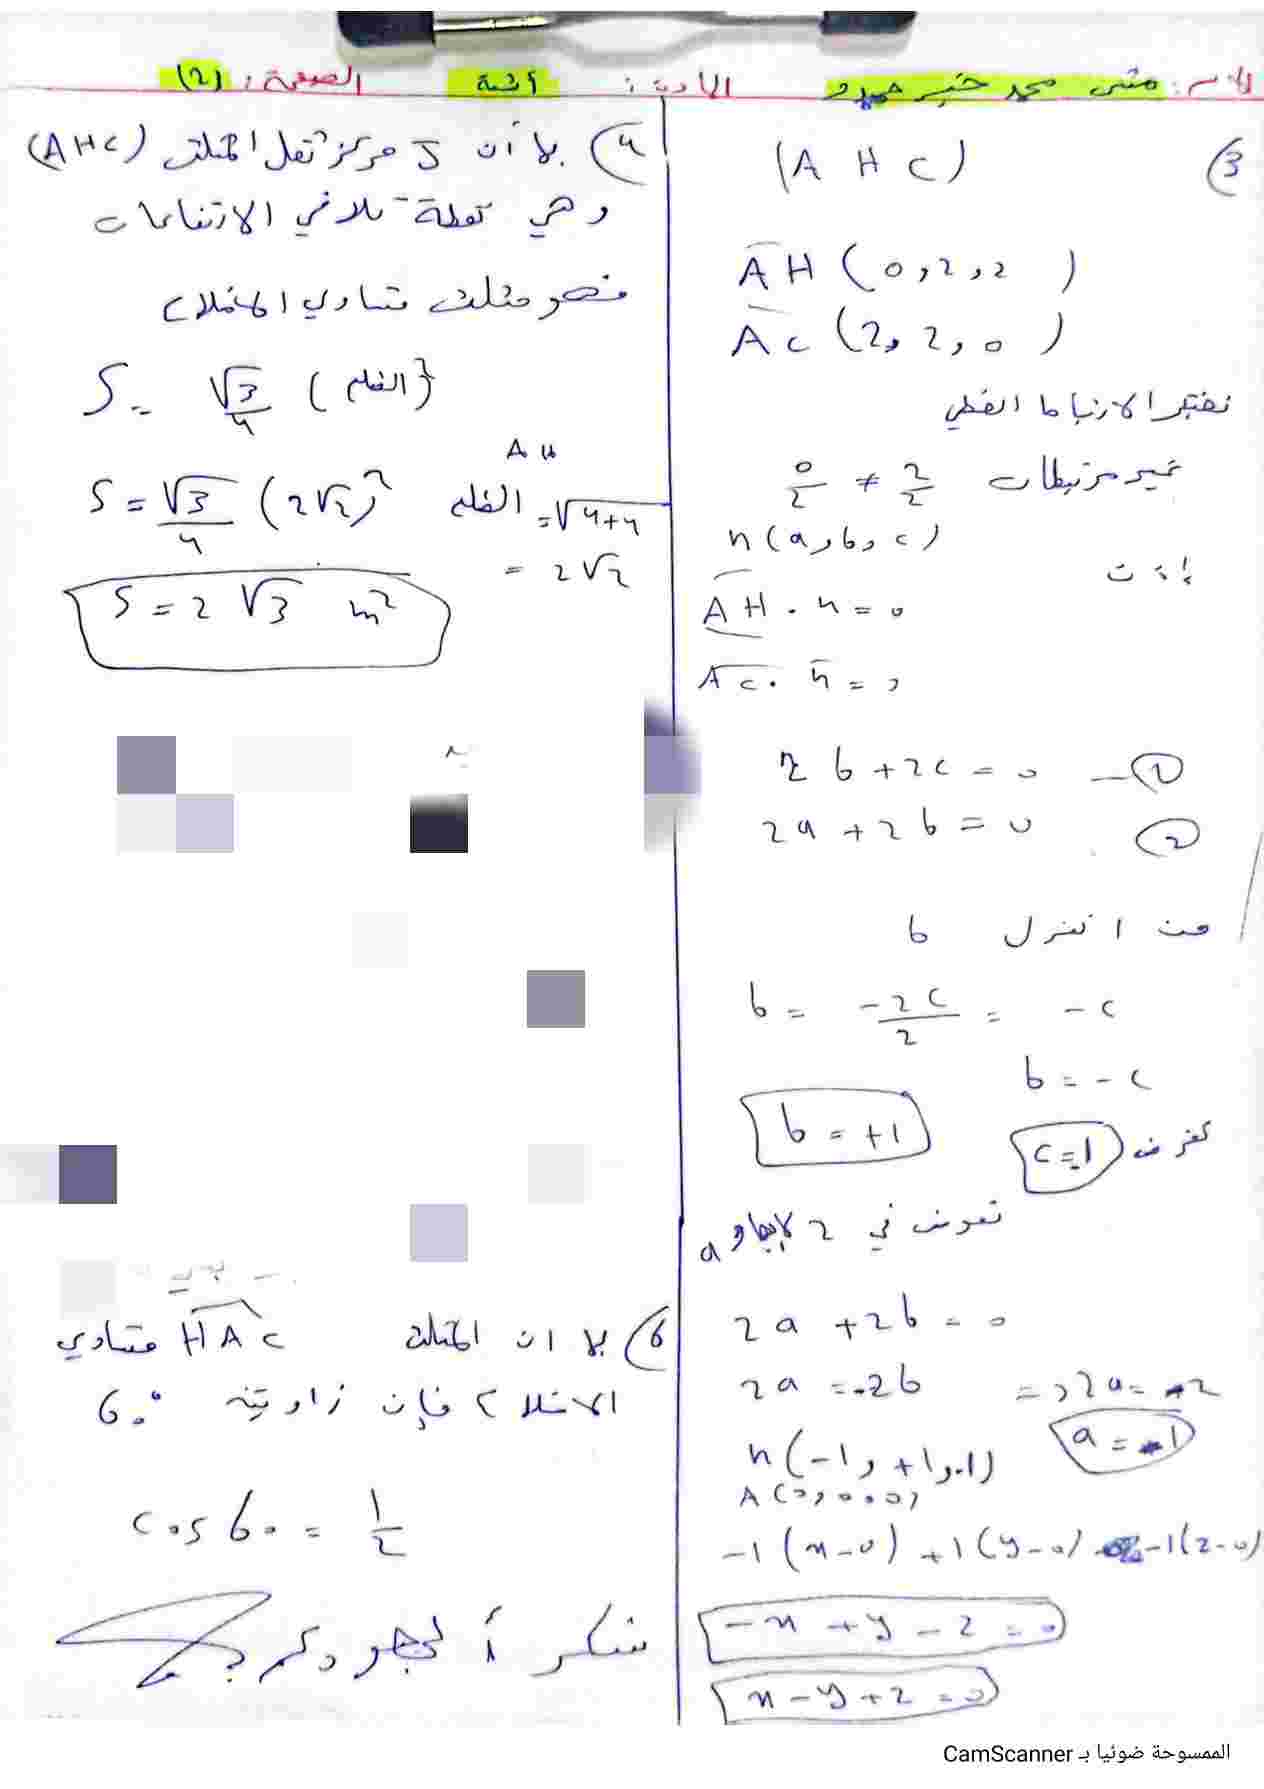 الاسم: مثنى محمد خير حميدو المادة: أتمتة الصفحة: (2)
3) (A H C)
AH (0,2,2)
AC (2,2,0)
نختبر الارتباط الخطي
غير مرتبطات 0/2 ≠ 2/2
n(a,b,c)
إذن
AH . n = 0
AC . n = 0
2b + 2c = 0 — ①
2a + 2b = 0 ②
من 1 نعزل b
b = -2c/2 = -c
b = -c
نفرض c=1
b = +1
نعوض في 2 لإيجاد a
2a + 2b = 0
2a = -2b => 2a = -2
a = -1
n(-1, +1, -1)
A(0,0,0)
-1(x-0) +1(y-0) -1(z-0)
-x + y - z = 0
x - y + z = 0
4) بلا أن J مركز ثقل المثلث (AHC)
وهي نقطة تلاقي الارتفاعات
فهو مثلث متساوي الاضلاع
S = √3/4 (الضلع)²
AH
S = √3/4 (2√2)² الضلع = √4+4
= 2√2
S = 2√3 m²
6) بلا ان المثلث HAC متساوي
الاضلاع فإن زاويته 60°
cos 60 = 1/2
شكراً لجهودكم
الممسوحة ضوئيا بـ CamScanner